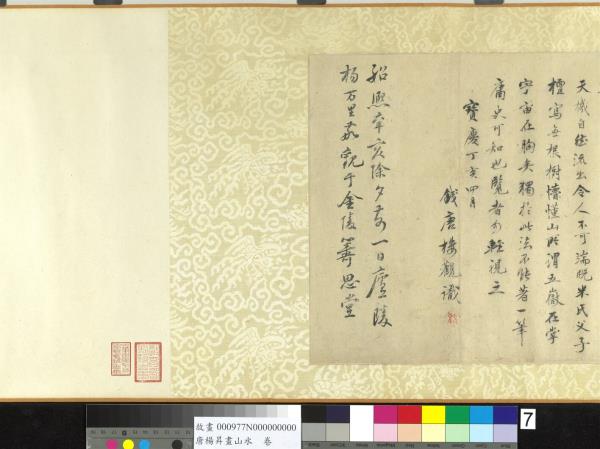 天機自終流出令人不可湍睨米氏父子
檀寫無根樹懵懂山時謂五嶽在掌
宇宙在胸矣獨於此法不能著一筆
庸史可知也覽者勿輕視之
寶慶丁亥四月
錢唐樓觀識
紹熙辛亥除夕前一日廬陵
楊万里敬觀于金陵籌思堂
故畫 000977N000000000
唐楊昇畫山水 卷
7